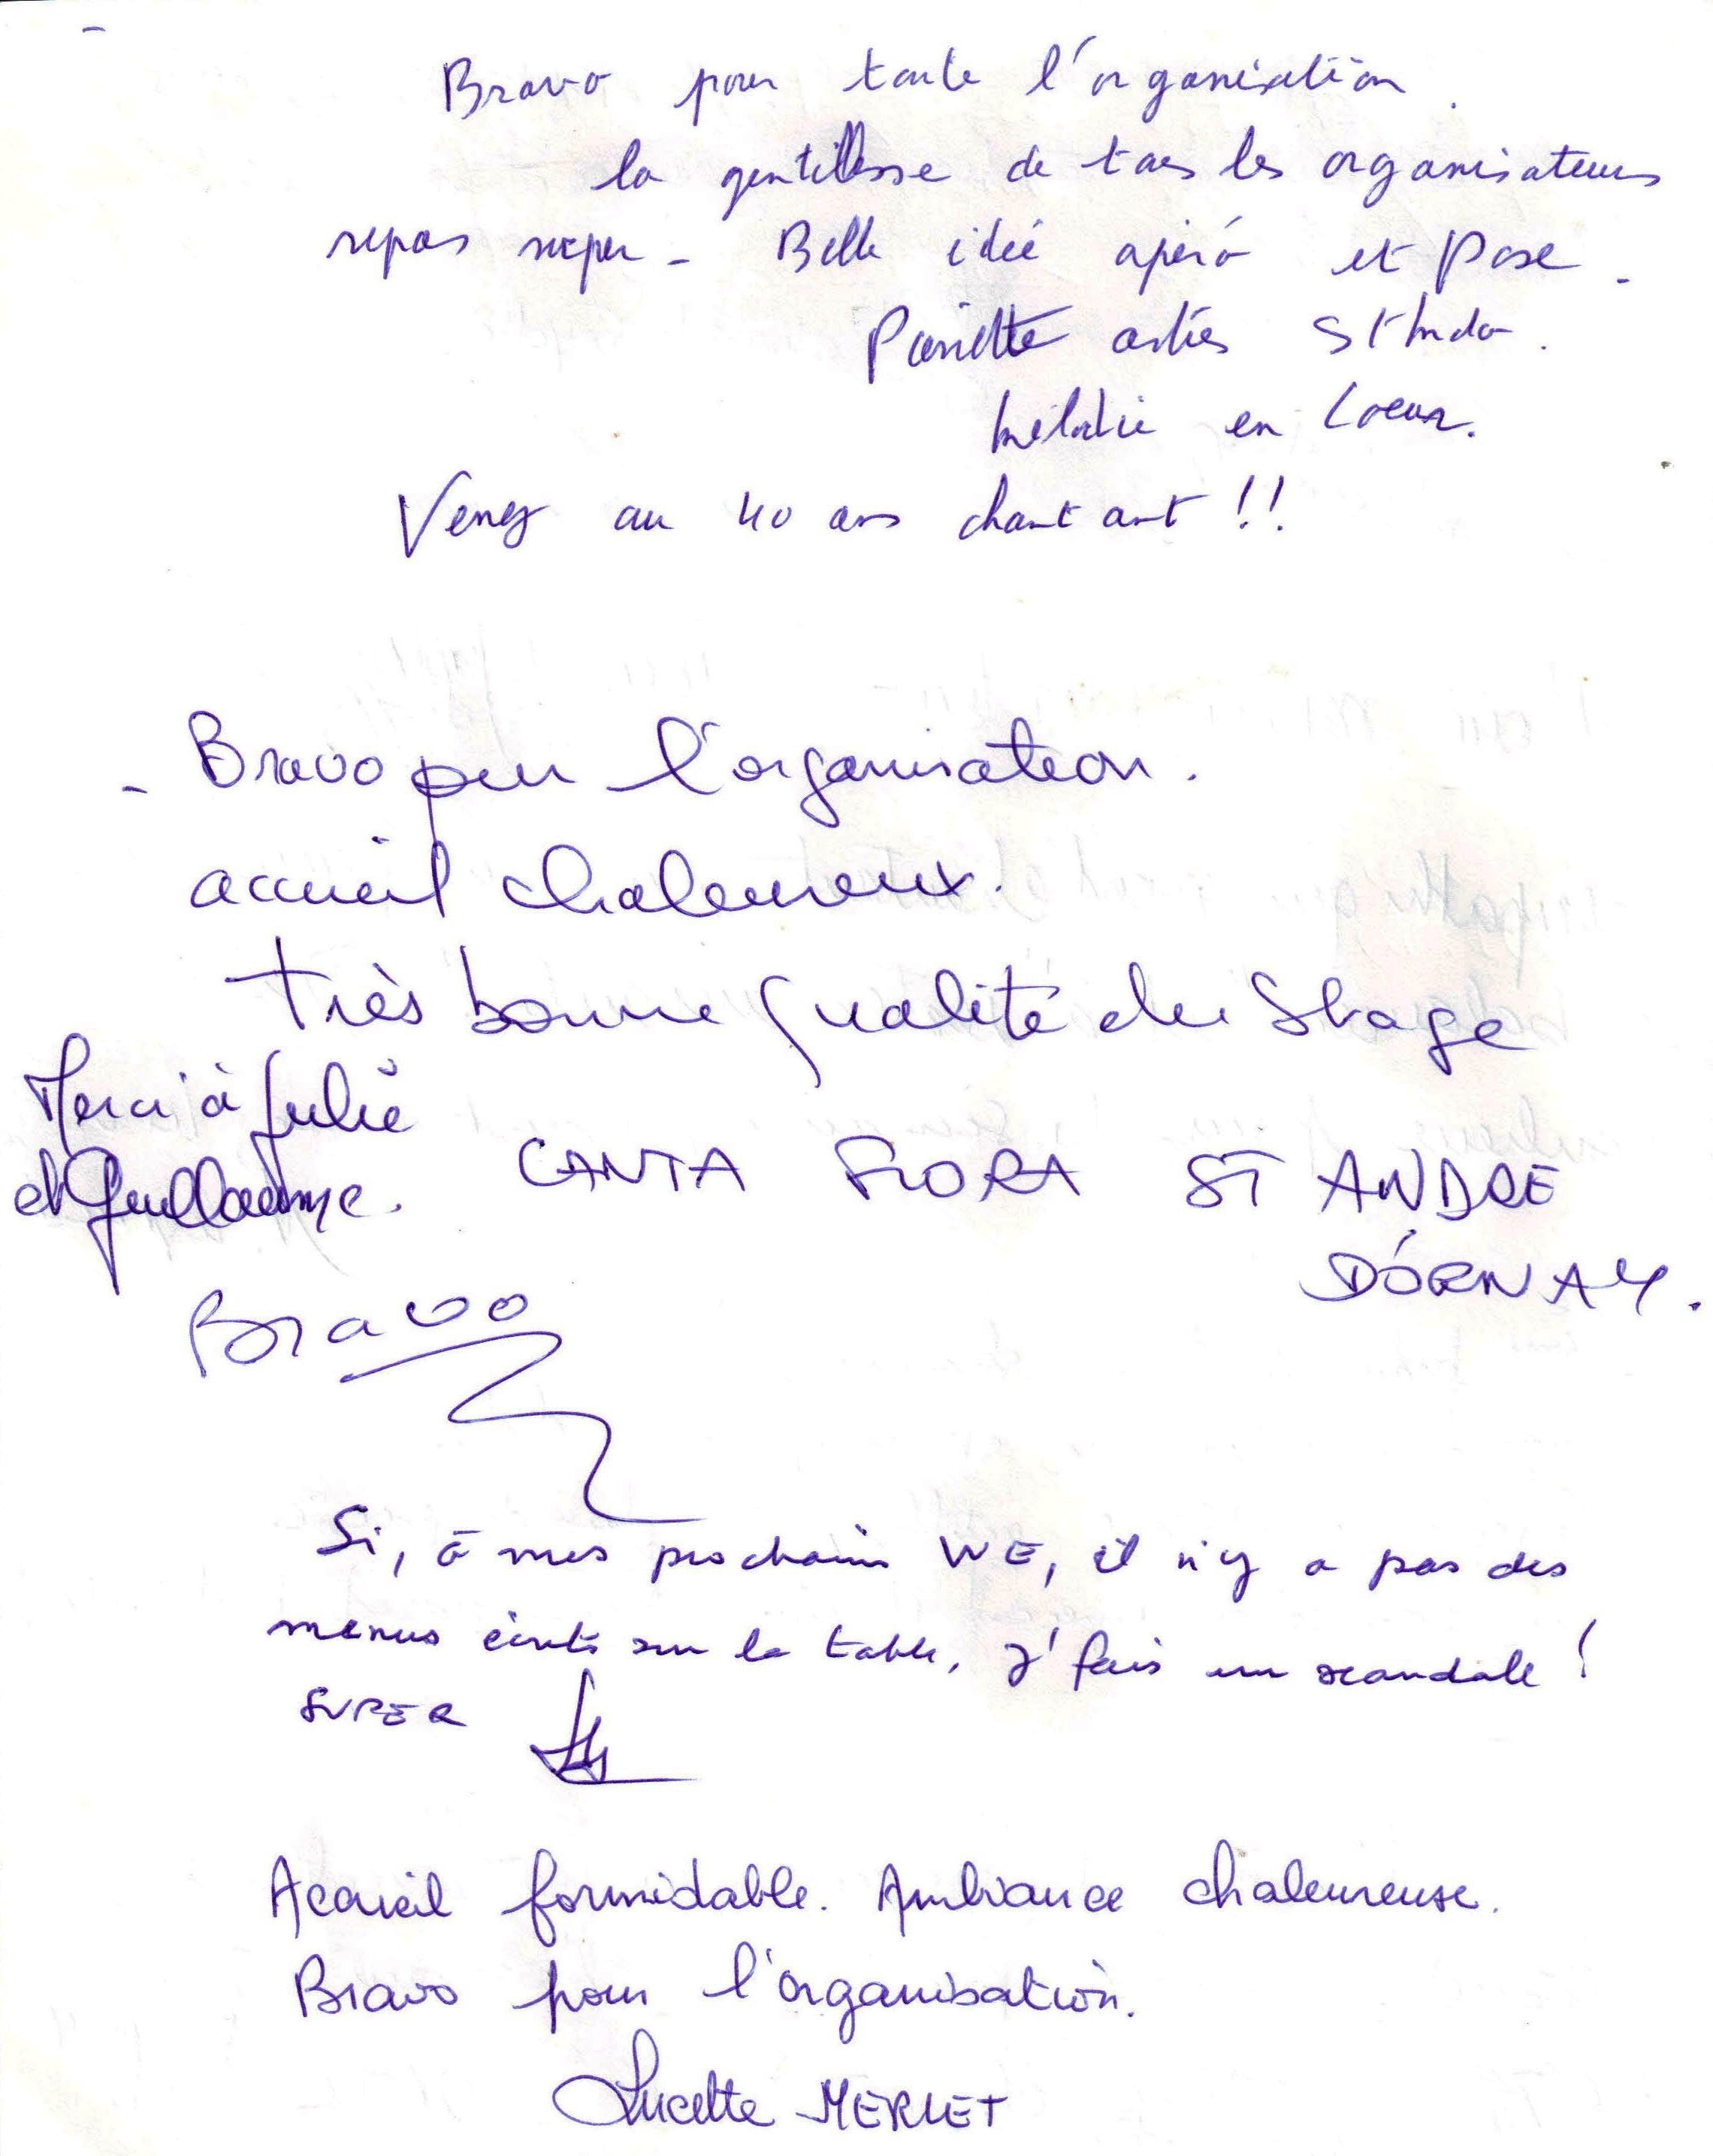 Bravo pour toute l'organisation.
la gentillesse de tous les organisateurs
repas super - Belle idée apéro et pose -
en Coeur.
Venez au 40 ans chantant !!
- Bravo pour l'organisation.
accueil chaleureux.
très bonne qualité du Stage
Merci à Julie
et Guillaume.
CANTA FLORA ST ANDRE
D'ORNAY.
Bravo
Si, à mes prochains WE, il n'y a pas des
menus écrits sur la table, j'fais un scandale !
SUPER
Accueil formidable. Ambiance chaleureuse.
Bravo pour l'organisation.
Lucette MERLET